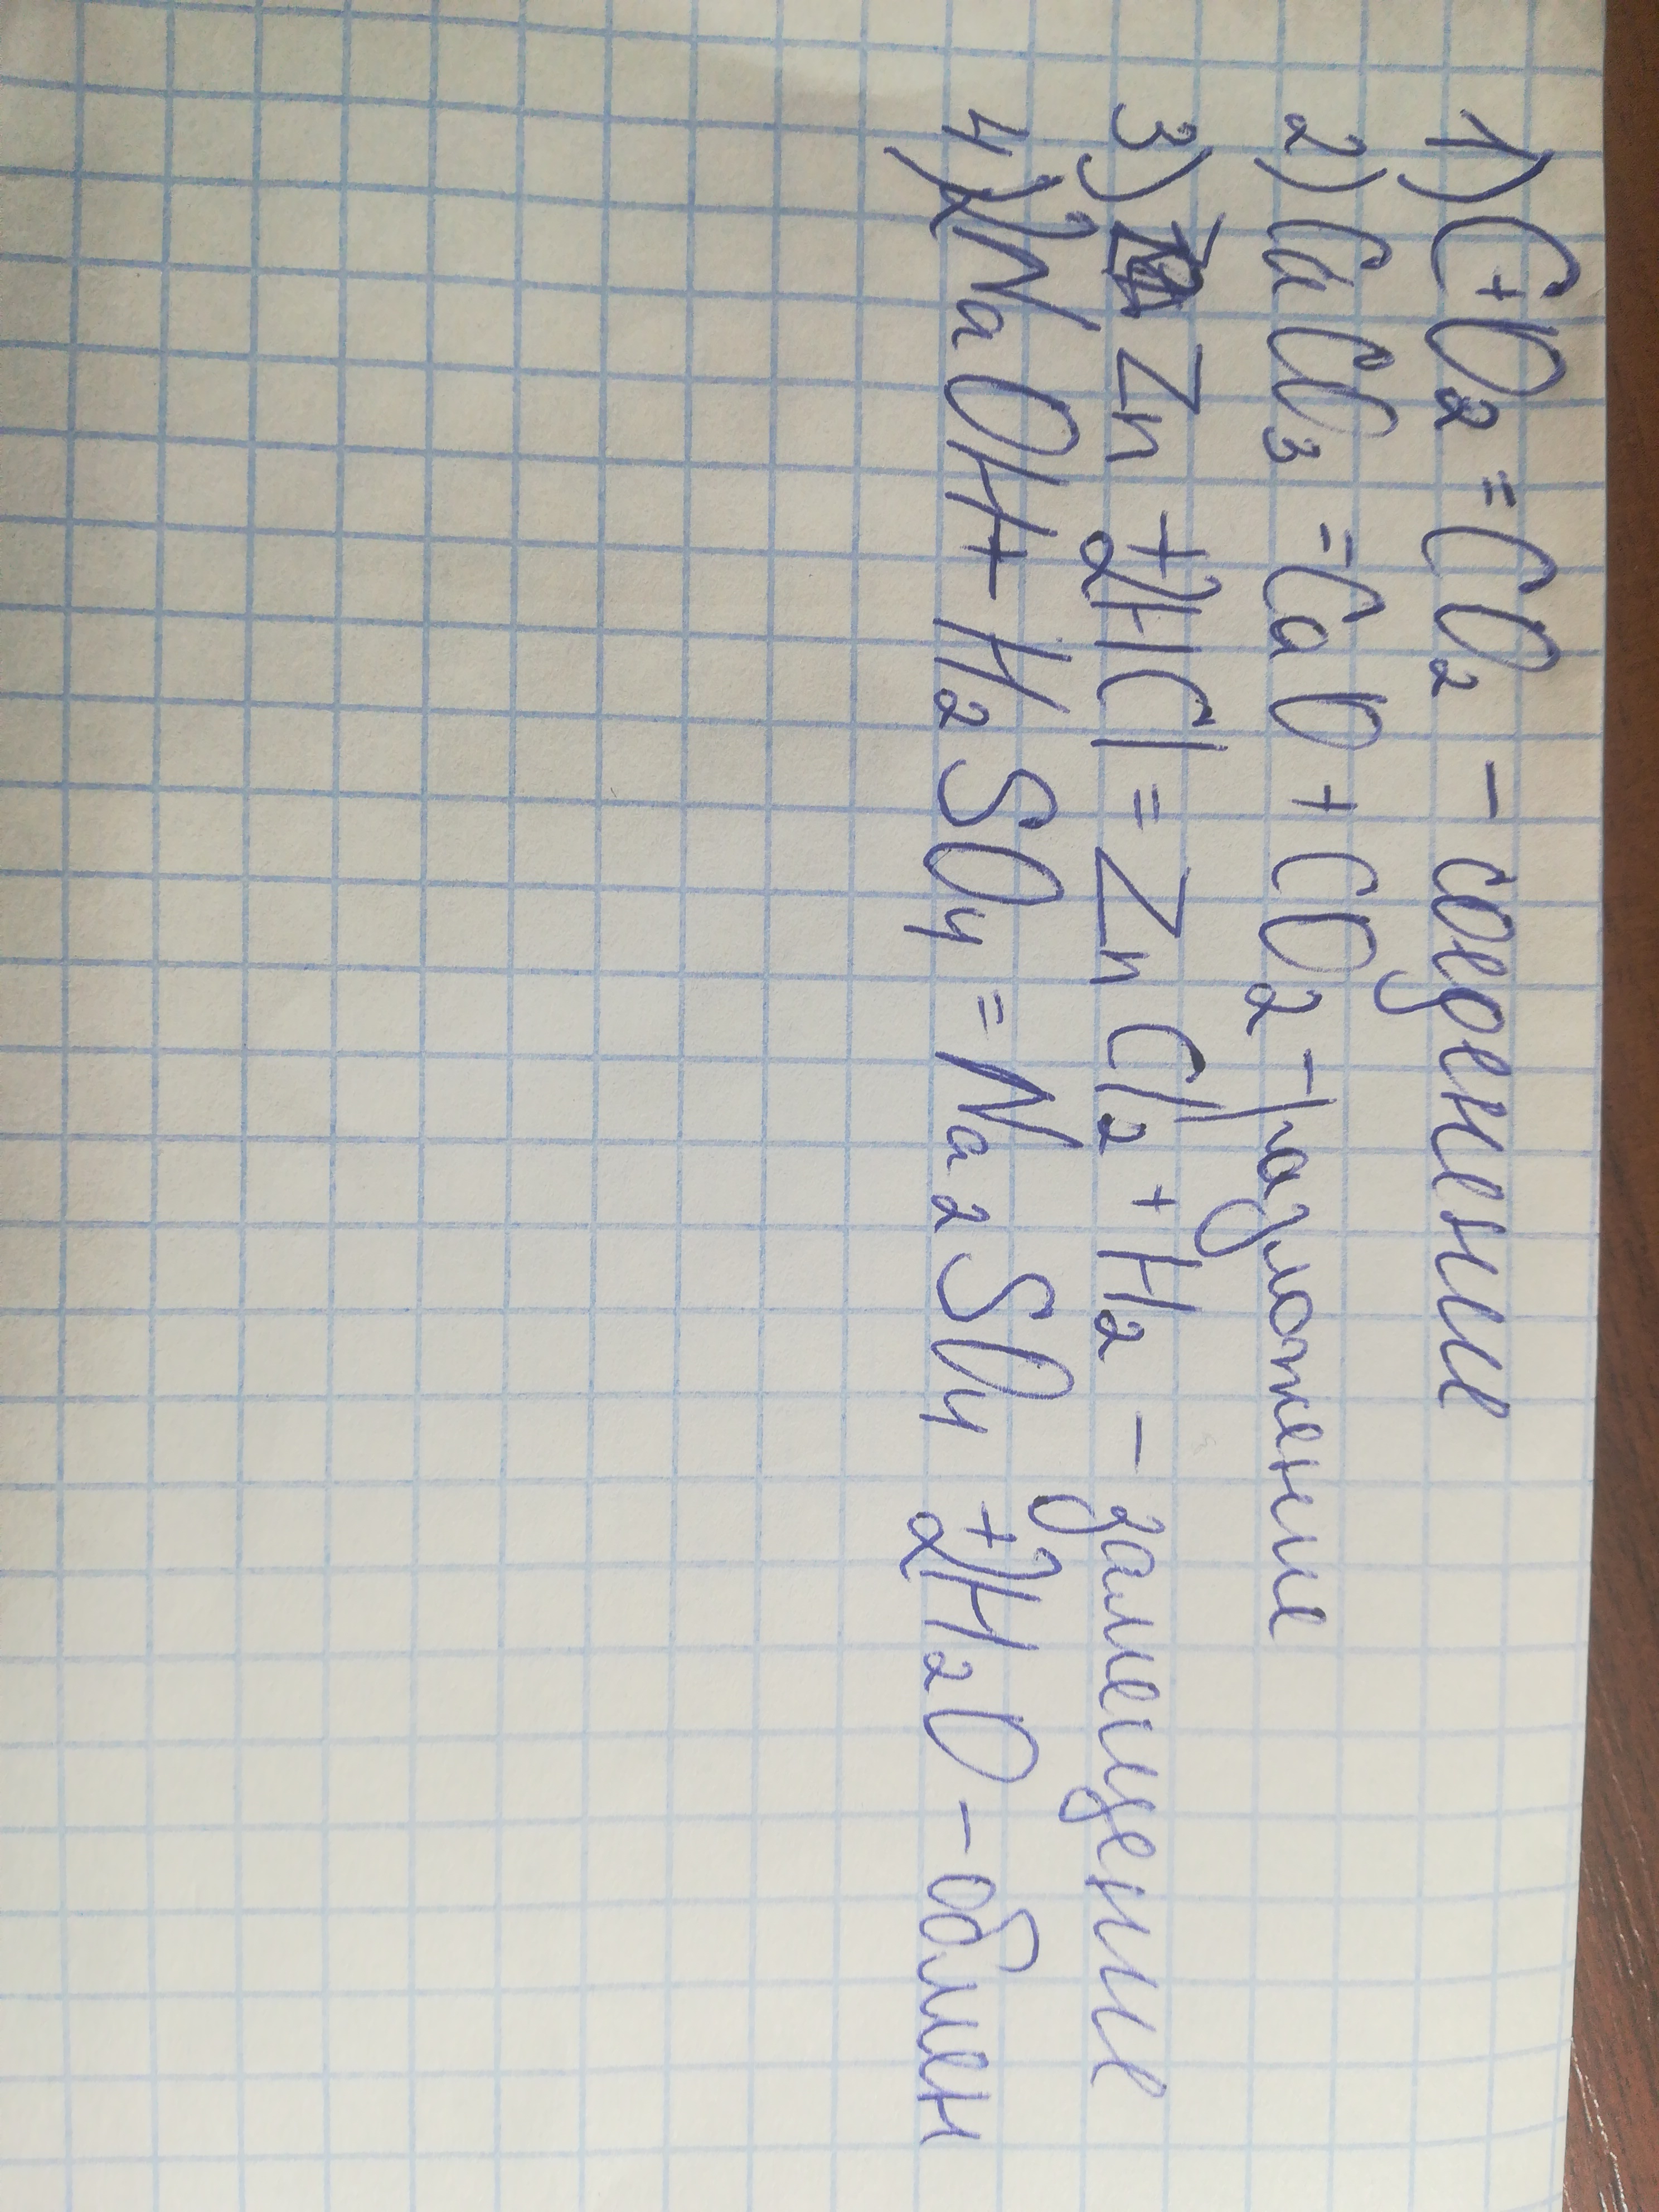 1) C+O₂ = CO₂ - соединение
2) CaCO₃ = CaO + CO₂ - разложение
3) Zn + 2HCl = ZnCl₂ + H₂ - замещение
4) 2NaOH + H₂SO₄ = Na₂SO₄ + 2H₂O - обмен